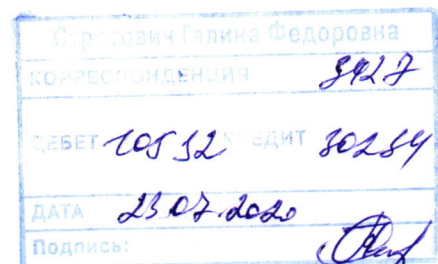 Галина Федоровна
КОРРЕСПОНДЕНЦИЯ 3427
ДЕБЕТ 10532 КРЕДИТ 30234
ДАТА 23.07.2020
Подпись: